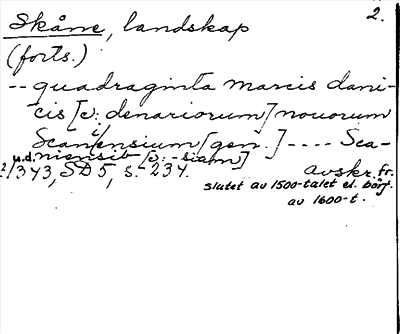 Skåne, landskap 2.
(forts.)
-- quadraginta marcis dani-
cis [ɔ: denariorum] nouorum
Scaniensium [gen.] ---- Sca-
niensib [ɔ: -siam]
u.d. 1343, SD 5, s. 234. avskr. fr.
slutet av 1500-talet el. börj.
av 1600-t.